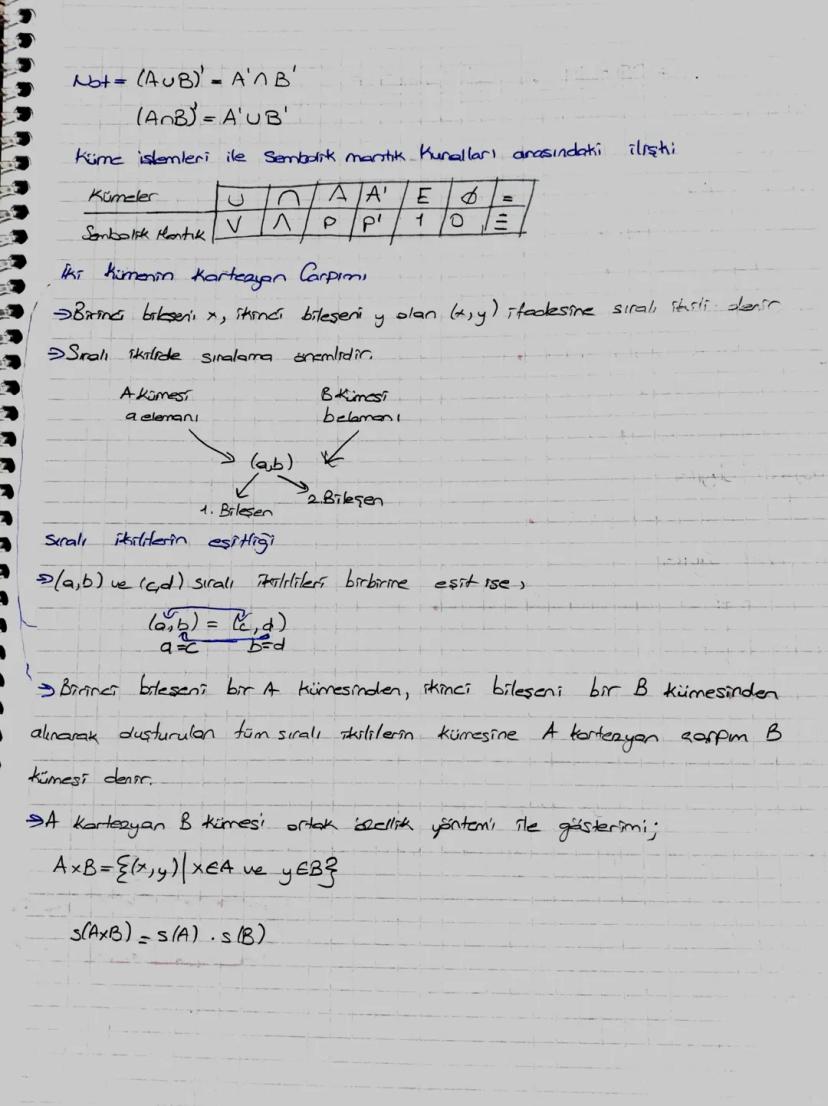 Not = (A∪B)' = A'∩B'
(A∩B)' = A'∪B'
Küme işlemleri ile Sembolik mantık Kuralları arasındaki ilişki
Kümeler ∪ ∩ A A' E ∅ =
Sembolik Mantık V Λ P P' 1 0 ≡
İki Kümenin Kartezyan Çarpımı
→Birinci bileşeni x, ikinci bileşeni y olan (x,y) ifadesine sıralı ikili denir
→Sıralı ikilide sıralama önemlidir.
A kümesi B kümesi
a elemanı b elamanı
(a,b)
1. Bileşen 2. Bileşen
Sıralı ikililerin eşitliği
→(a,b) ve (c,d) sıralı ikilileri birbirine eşit ise,
(a,b) = (c,d)
a=c b=d
→Birinci bileşeni bir A kümesinden, ikinci bileşeni bir B kümesinden
alınarak oluşturulan tüm sıralı ikililerin kümesine A kartezyan çarpım B
kümesi denir.
→A kartezyan B kümesi ortak özellik yöntemi ile gösterimi;
A×B={(x,y)|x∈A ve y∈B}
s(A×B) = s(A) . s(B)